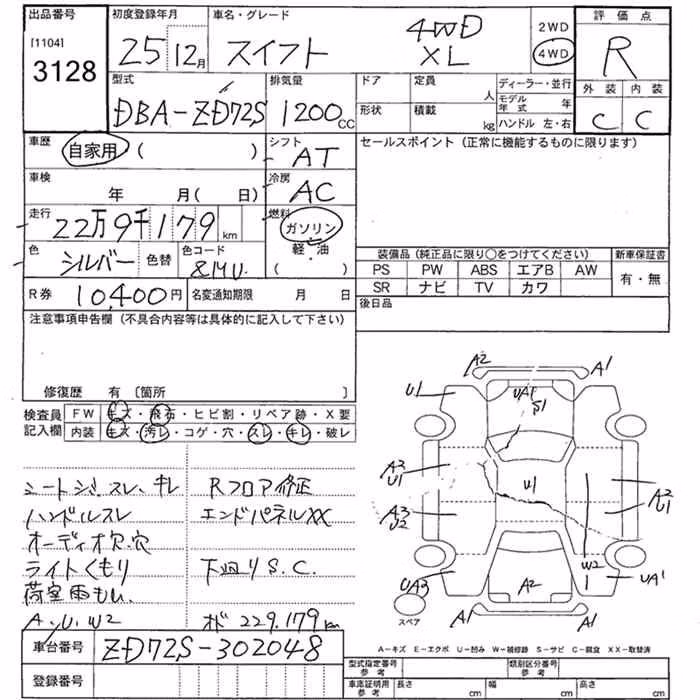 出品番号
[1104]
3128
初度登録年月
25 12月
車名・グレード
スイフト
4WD
XL
2WD
4WD
評価点
R
外装 内装
C C
型式
DBA-ZD72S
排気量
1200 CC
ドア
定員
人
形状
積載
kg
ディーラー・並行
モデル年式 年
ハンドル 左・右
車歴
自家用 ( )
シフト
AT
セールスポイント (正常に機能するものに限ります)
車検
年 月( 日)
冷房
AC
走行
22万9千179 km
燃料
ガソリン
軽・油
( )
色
シルバー
色替
色コード
装備品 (純正品に限り○をつけてください)
新車保証書
PS PW ABS エアB AW
SR ナビ TV カワ
有・無
R券
10,400円
名変通知期限 月 日
後日品
注意事項申告欄 (不具合内容等は具体的に記入して下さい)
修復歴 有 〔箇所 〕
検査員記入欄
FW キズ・飛石・ヒビ割・リペア跡・X要
内装 キズ・汚レ・コゲ・穴・スレ・キレ・破レ
シートシミ、スレ、キレ
Rフロア修正
ハンドルスレ
エンドパネルXX
オーディオ欠.穴
ライトくもり
下廻りS.C.
荷室雨もい.
A.U.W2
オド 229.179km
車台番号
ZD72S-302048
登録番号
A2
A1
U1
UA1
S1
A2
U1
U1
A2
U1
A3
U2
W2
UA3
A2
UA1
スペア
A1
A1
A-キズ E-エクボ U-凹み W-補修跡 S-サビ C-腐食 XX-取替済
型式指定番号 参考
類別区分番号 参考
車庫証明用 参考
長さ cm
幅 cm
高さ cm